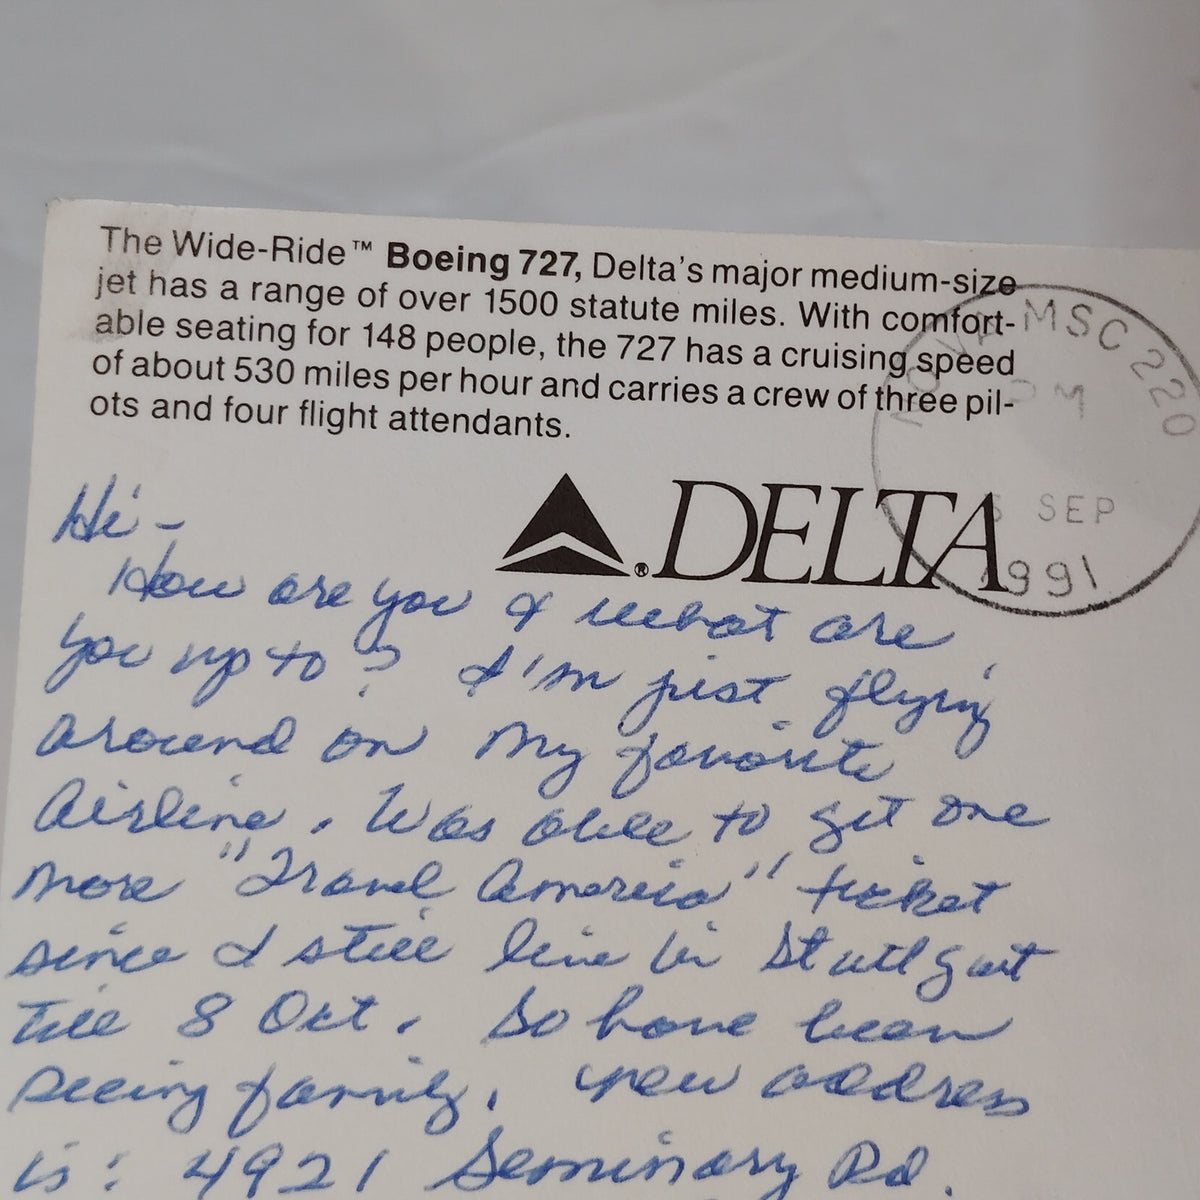 The Wide-Ride™ Boeing 727, Delta's major medium-size
jet has a range of over 1500 statute miles. With comfort-
able seating for 148 people, the 727 has a cruising speed
of about 530 miles per hour and carries a crew of three pil-
ots and four flight attendants.
MSC 220
PM
SEP
1991
®DELTA
Hi -
How are you & what are
you up to? I'm just flying
around on my favorite
Airline. Was able to get one
more "Travel America" ticket
since I still live in Stuttgart
till 8 Oct. So have been
seeing family. New address
is: 4921 Seminary Rd.